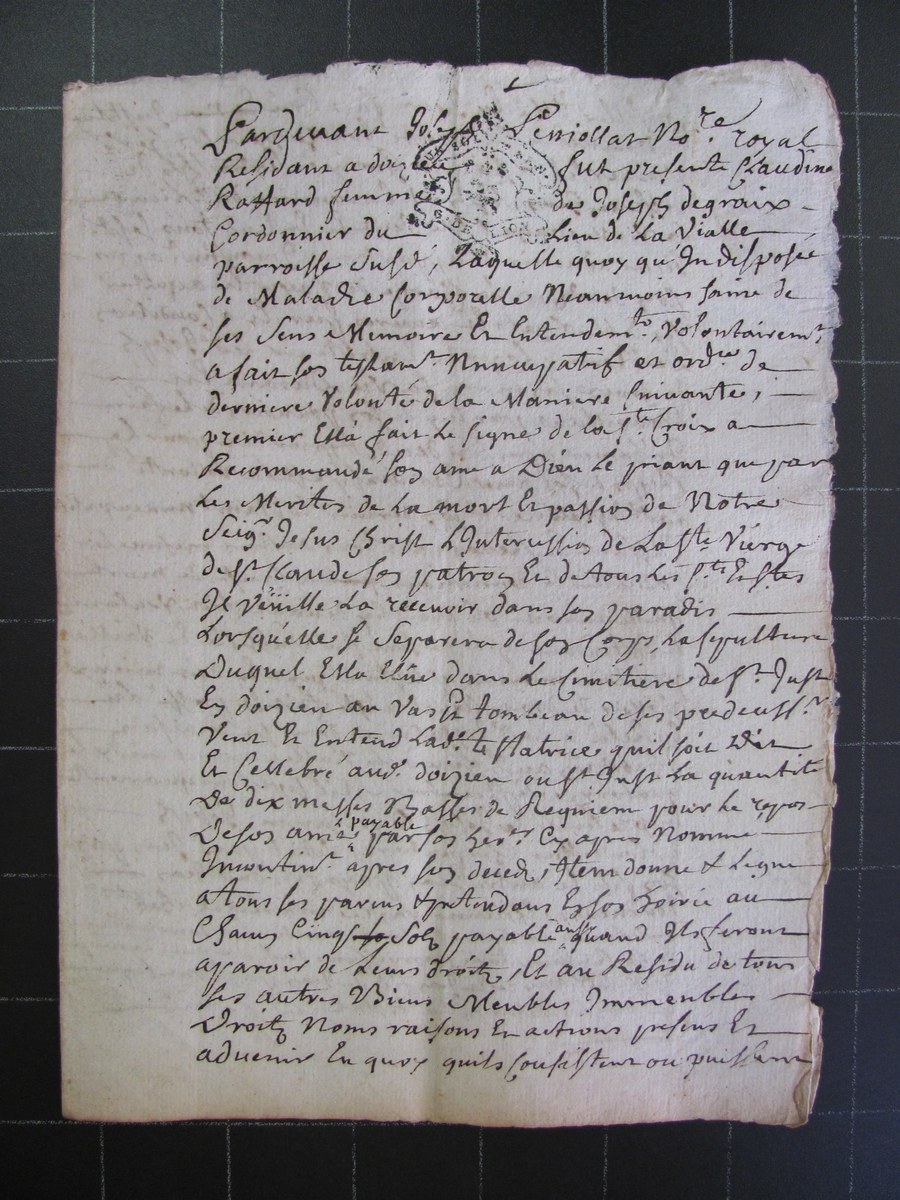 Pardevant Jos Peniollat No.re royal
Residant a doizieu fut presente Claudine
Raffard femme de Joseph degraix
Cordonnier du Lieu de La Vialle
parroisse susd, Laquelle quoy qu'Indisposée
de Maladie Corporelle Neanmoins saine de
ses sens Memoire Et Entendem.t, Volontairem.t
a fait son testam.t Nuncupatif et ord.ce de
derniere Volonté de la Maniere suivante,
premier Ella fait Le signe de la s.te Croix a
Recommandé son ame a Dieu Le priant que par
Les Merites de La mort Et passion de Notre
Seig.r Jesus Christ L'Intercession de La s.te Vierge
de s.t Claude son patron Et de tous Les s.ts Et s.tes
Il veüille La recevoir dans son paradis
Lorsquelle se separera de son Corps, La sepulture
Duquel Ella Elüe dans Le Cimitiere de s.t Just
En doizieu au Vas et tombeau de ses predecess.rs
Veut Et Entend Lad.e testatrice quil soit Dit
Et Cellebré aud. doizieu ou st Just La quantité
De dix messes Basses de Requiem pour Le repos
De son ame payable par son her.r Cy apres Nommé
Incontin.t apres son deced, Item donne & Legue
a tous ses parens & pretendans En son hoirie au
Chacun Cinq Solz payable aussy quand Ils feront
aparoir de Leurs droitz, Et au Residu de tous
ses autres Biens Meubles Immeubles
Droitz Noms raisons Et actions presens Et
advenir En quoy quils Consistent ou puissent